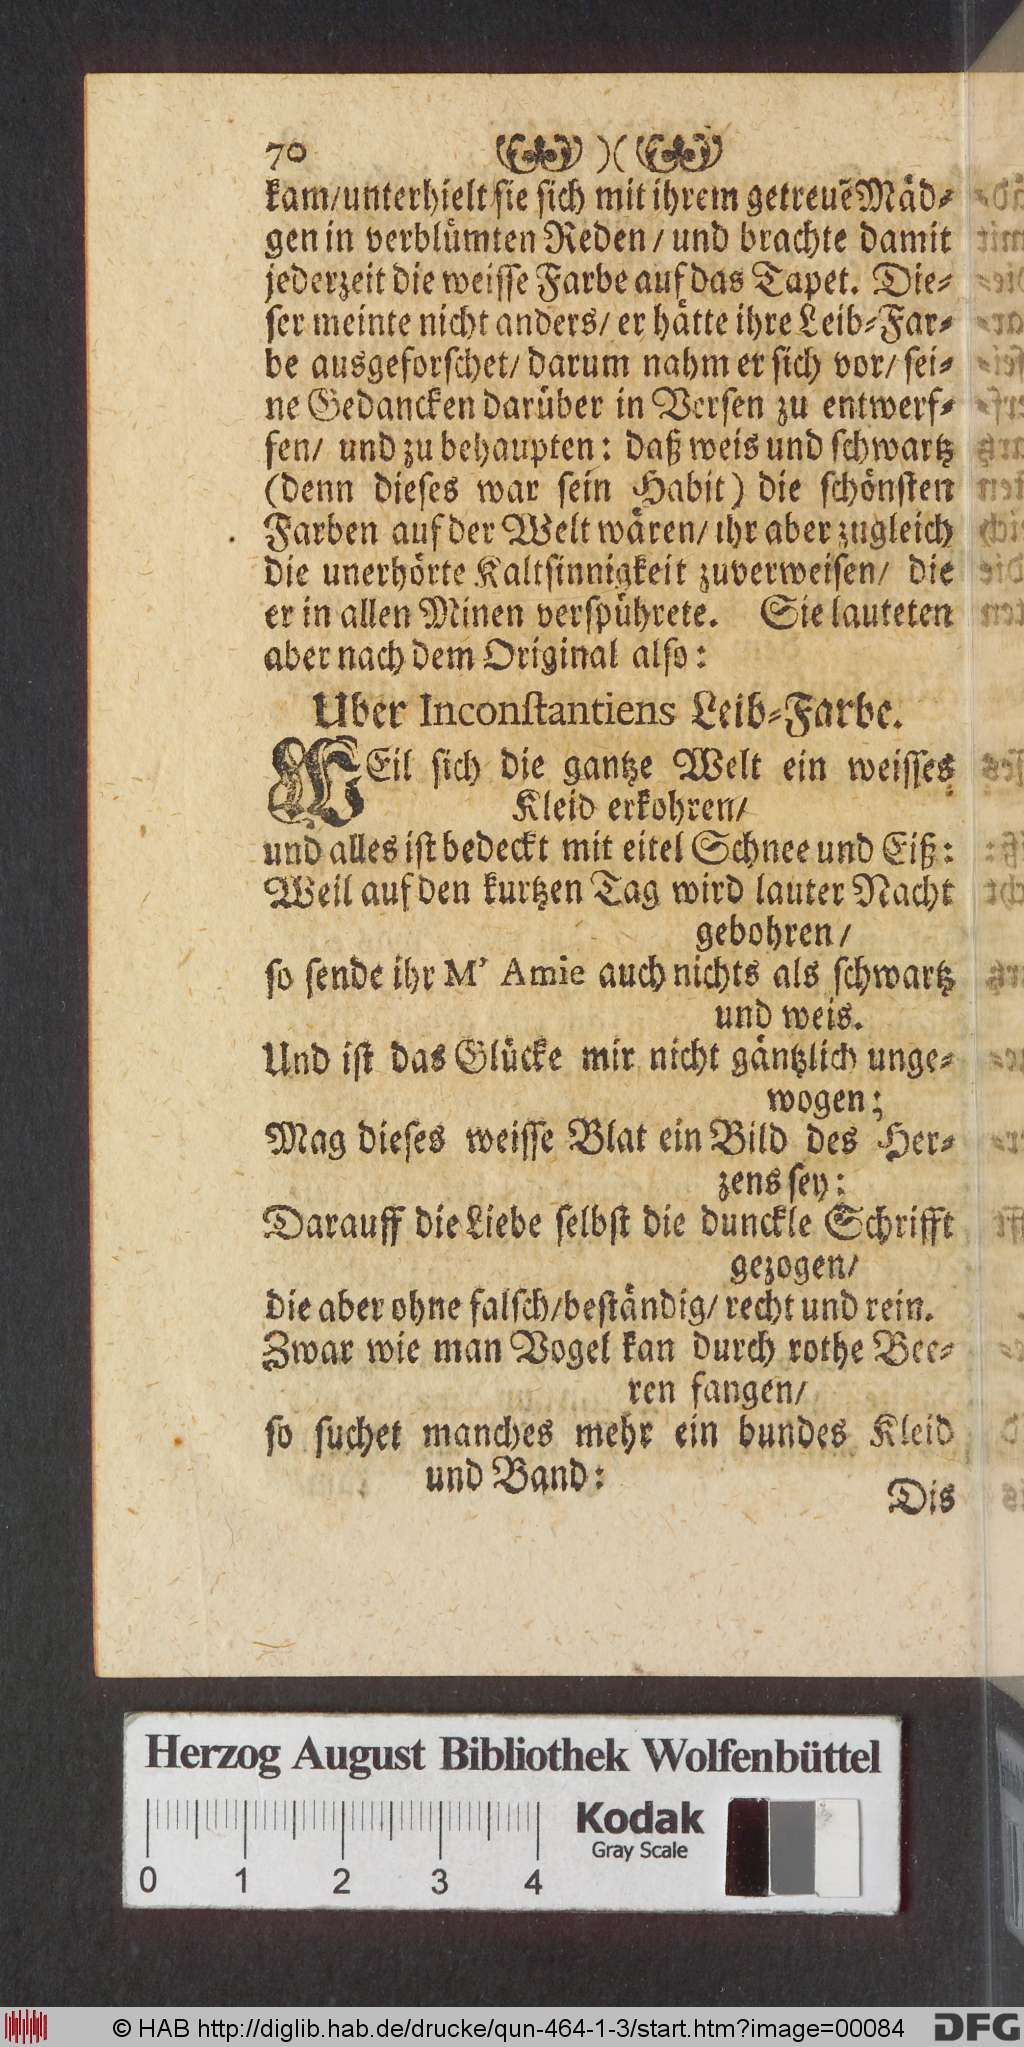 70 )(
kam/unterhielt sie sich mit ihrem getreuẽ Mäd-
gen in verblümten Reden / und brachte damit
jederzeit die weisse Farbe auf das Tapet. Die-
ser meinte nicht anders/ er hätte ihre Leib-Far-
be ausgeforschet/ darum nahm er sich vor/ sei-
ne Gedancken darüber in Versen zu entwerf-
fen/ und zu behaupten: daß weis und schwartz
(denn dieses war sein Habit) die schönsten
Farben auf der Welt wären/ ihr aber zugleich
die unerhörte Kaltsinnigkeit zuverweisen/ die
er in allen Minen verspührete. Sie lauteten
aber nach dem Original also:
Uber Inconstantiens Leib-Farbe.
WEil sich die gantze Welt ein weisses
Kleid erkohren/
und alles ist bedeckt mit eitel Schnee und Eiß:
Weil auf den kurtzen Tag wird lauter Nacht
gebohren /
so sende ihr M' Amie auch nichts als schwartz
und weis.
Und ist das Glücke mir nicht gäntzlich unge-
wogen;
Mag dieses weisse Blat ein Bild des Her-
zens sey:
Darauff die Liebe selbst die dunckle Schrifft
gezogen/
die aber ohne falsch/beständig/ recht und rein.
Zwar wie man Vogel kan durch rothe Bee-
ren fangen/
so suchet manches mehr ein bundes Kleid
und Band:
Dis
Herzog August Bibliothek Wolfenbüttel
Kodak
Gray Scale
0 1 2 3 4
© HAB http://diglib.hab.de/drucke/qun-464-1-3/start.htm?image=00084 DFG